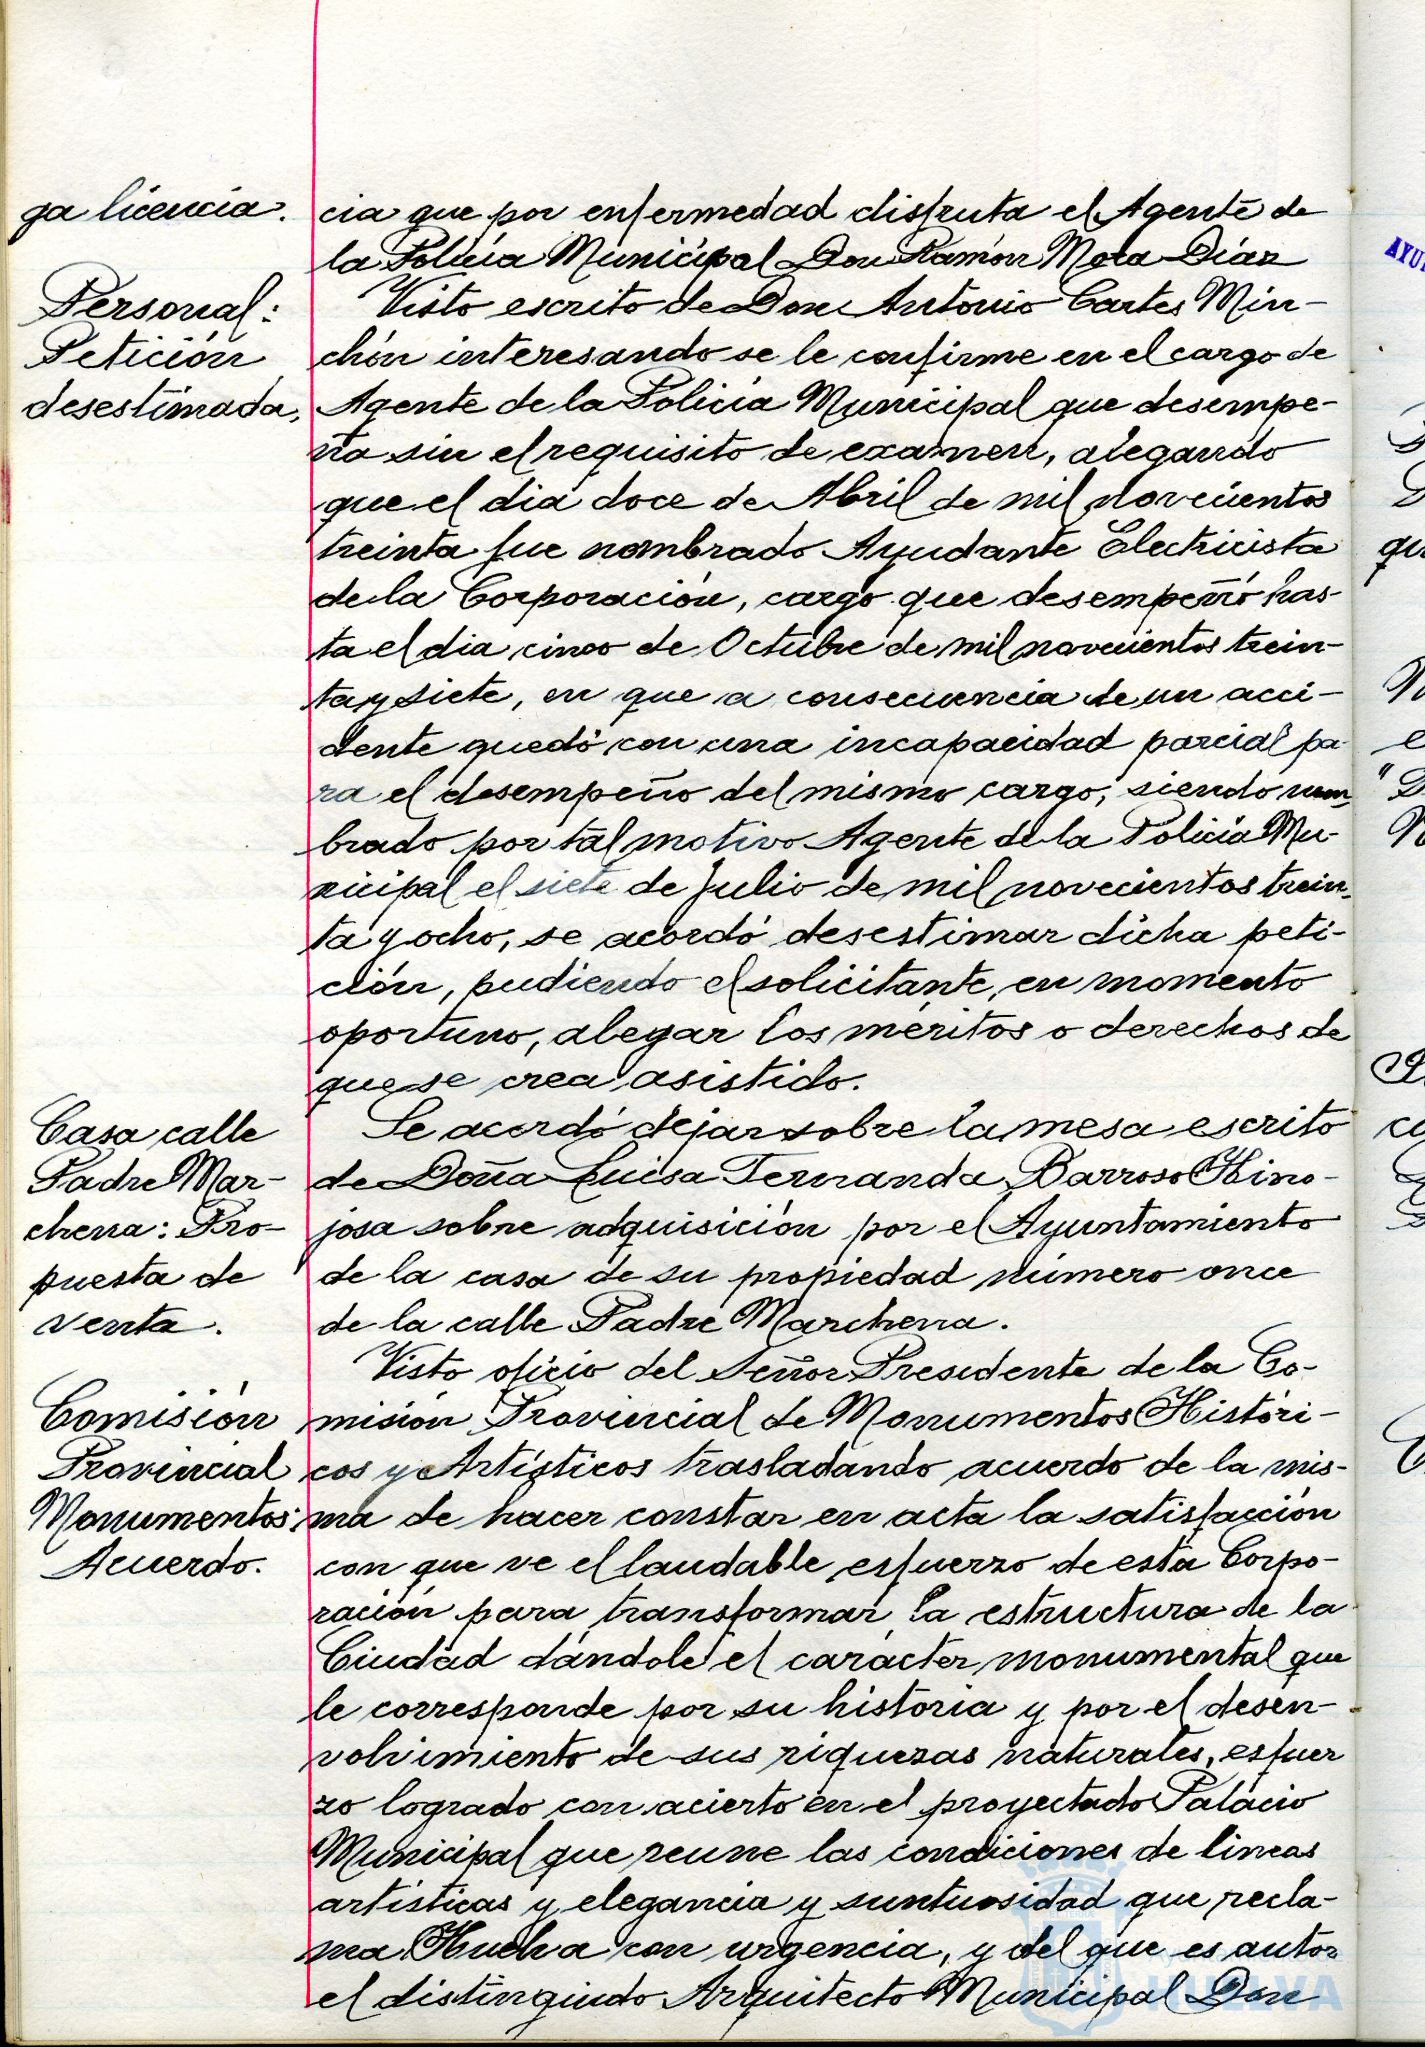 ga licencia.
cia que por enfermedad disfruta el Agente de
la Policía Municipal Don Ramón Mora Díaz
Personal:
Petición
desestimada.
Visto escrito de Don Antonio Cartes Min-
chón interesando se le confirme en el cargo de
Agente de la Policía Municipal que desempe-
ña sin el requisito de examen, alegando
que el dia doce de Abril de mil novecientos
treinta fue nombrado Ayudante Electricista
de la Corporación, cargo que desempeñó has-
ta el dia cinco de Octubre de mil novecientos trein-
ta y siete, en que a consecuencia de un acci-
dente quedó con una incapacidad parcial pa-
ra el desempeño del mismo cargo, siendo nom-
brado por tal motivo Agente de la Policía Mu-
nicipal el siete de Julio de mil novecientos trein-
ta y ocho, se acordó desestimar dicha peti-
ción, pudiendo el solicitante, en momento
oportuno, alegar los méritos o derechos de
que se crea asistido.
Casa calle
Padre Mar-
chena: Pro-
puesta de
venta.
Se acordó dejar sobre la mesa escrito
de Doña Luisa Fernanda Barroso Hino-
josa sobre adquisición por el Ayuntamiento
de la casa de su propiedad número once
de la calle Padre Marchena.
Comisión
Provincial
Monumentos:
Acuerdo.
Visto oficio del Señor Presidente de la Co-
misión Provincial de Monumentos Históri-
cos y Artísticos trasladando acuerdo de la mis-
ma de hacer constar en acta la satisfacción
con que ve el laudable esfuerzo de esta Corpo-
ración para transformar la estructura de la
Ciudad dándole el carácter monumental que
le corresponde por su historia y por el desen-
volvimiento de sus riquezas naturales, esfuer
zo logrado con acierto en el proyectado Palacio
Municipal que reune las condiciones de lineas
artísticas y elegancia y suntuosidad que recla-
ma Huelva con urgencia, y del que es autor
el distinguido Arquitecto Municipal Don
HUELVA